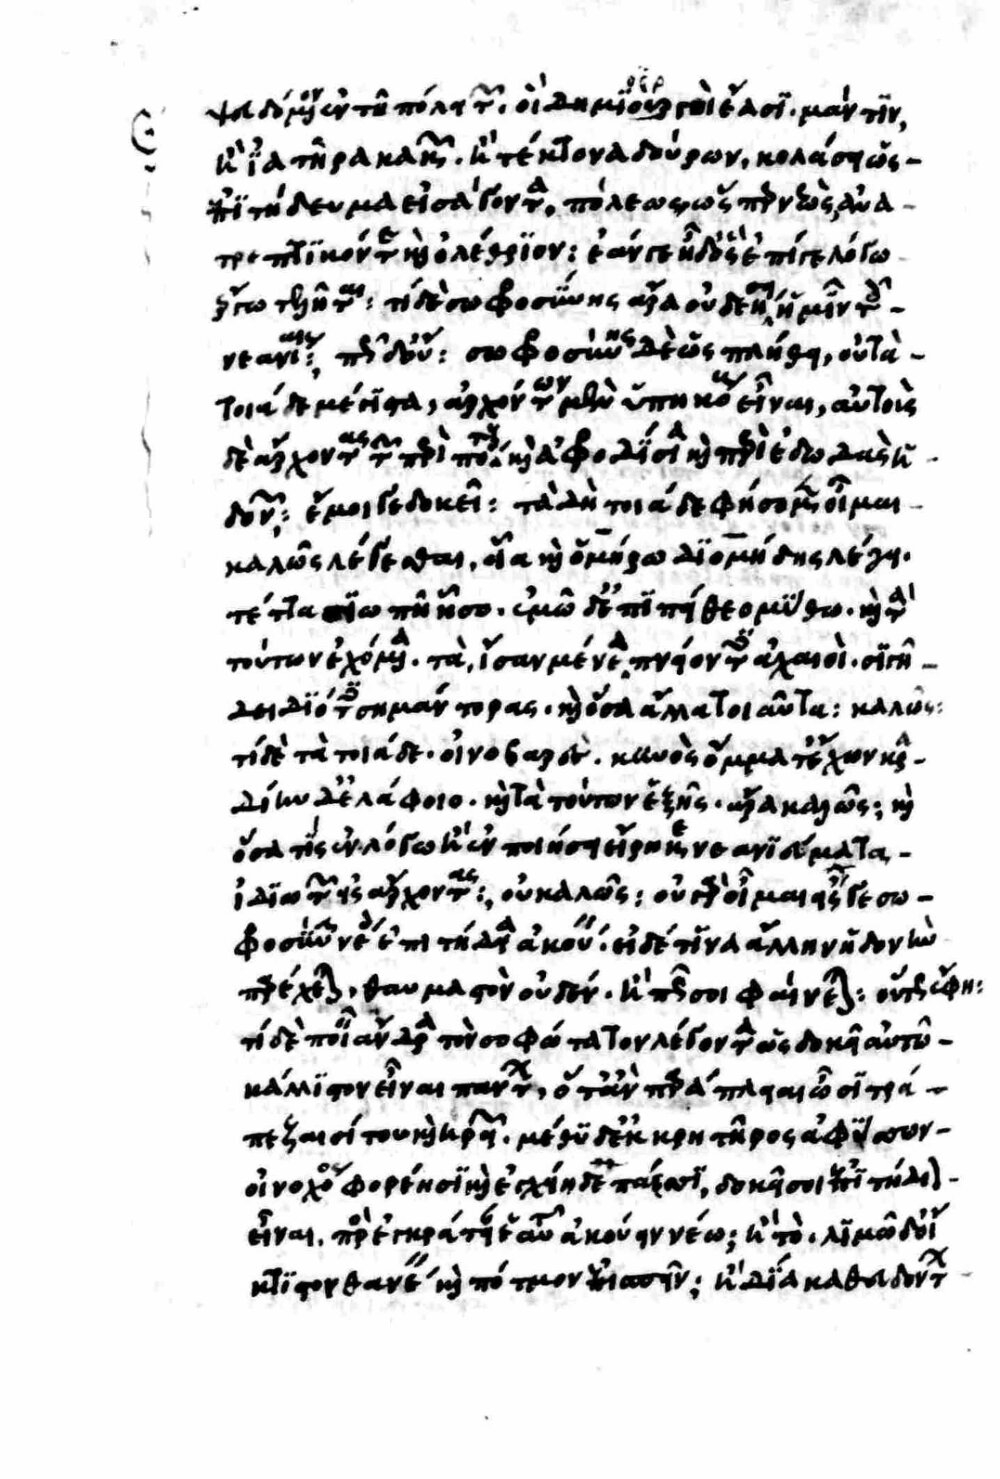 ψευδόμενον ἐν τῇ πόλει τῶν. οἳ δημιοεργοὶ ἔασι. μάντιν,
ἢ ἰατῆρα κακῶν. ἢ τέκτονα δούρων, κολάσει ὡς
ἐπιτήδευμα εἰσάγοντα, πόλεως ὥσπερ νεὼς, ἀνα
τρεπτικόν τε καὶ ὀλέθριον: ἐάν γε ἦ δ' ὃς ἐπί γε λόγω
ἔργα τελῆται: τί δὲ σωφροσύνης ἆρα οὐ δεήσει ἡμῖν τοῖς
νεανίαις; πῶς δ' οὔ: σωφροσύνης δὲ ὡς πλήθει, οὐ τὰ
τοιάδε μέγιστα, ἀρχόντων μὲν ὑπηκόους εἶναι, αὐτοὺς
δὲ ἄρχοντας τῶν περὶ πότους καὶ ἀφροδίσια καὶ περὶ ἐδωδὰς ἡ
δονῶν; ἔμοιγε δοκεῖ: τὰ δὴ τοιάδε φήσομεν οἶμαι
καλῶς λέγεσθαι, οἷα καὶ ὁμήρω διομήδης λέγει.
τέττα σιωπῇ ἧσο. ἐμῶ δ' ἐπιπείθεο μύθω. καὶ τὰ
τούτων ἐχόμενα. τὰ, ἴσαν μένεα πνείοντες ἀχαιοὶ. σιγῇ
δειδιότες σημάντορας. καὶ ὅσα ἄλλα τοιαῦτα: καλῶς:
τί δὲ τὰ τοιάδε. οἰνοβαρές. κυνὸς ὄμματ' ἔχων κρα
δίην δ' ἐλάφοιο. καὶ τὰ τούτων ἑξῆς. ἆρα καλῶς; καὶ
ὅσα τίς ἐν λόγω ἢ ἐν ποιήσει εἴρηκε νεανιεύματα
ἰδιωτῶν εἰς ἄρχοντας;, οὐ καλῶς; οὐ γὰρ οἶμαι εἴς γε σω
φροσύνην νέοις ἐπιτήδεια ἀκούειν. εἰ δέ τινα ἄλλην ἡδονὴν
παρέχεται, θαυμαστὸν οὐδέν. ἢ πῶς σοι φαίνεται: οὕτως ἔφη:
τί δὲ ποιεῖν ἄνδρα τὸν σοφώτατον λέγοντα ὡς δοκεῖ αὐτῶ
κάλλιστον εἶναι πάντων, ὅταν παρὰ πλεῖαι ὦσι τρά
πεζαι σίτου καὶ κρειῶν. μέθυ δ' ἐκ κρητῆρος ἀφύσσων
οἰνοχόος φορέησι καὶ ἐγχείη δεπάεσσι, δοκεῖ σοι ἐπιτήδειον
εἶναι. πρὸς ἐγκράτειαν ἑαυτοῦ ἀκούειν νέω; ἢ τὸ. λιμῶ δ' οἴ
κτιστον θανέειν καὶ πότμον ἐπισπεῖν; ἢ δία καθευδόντων